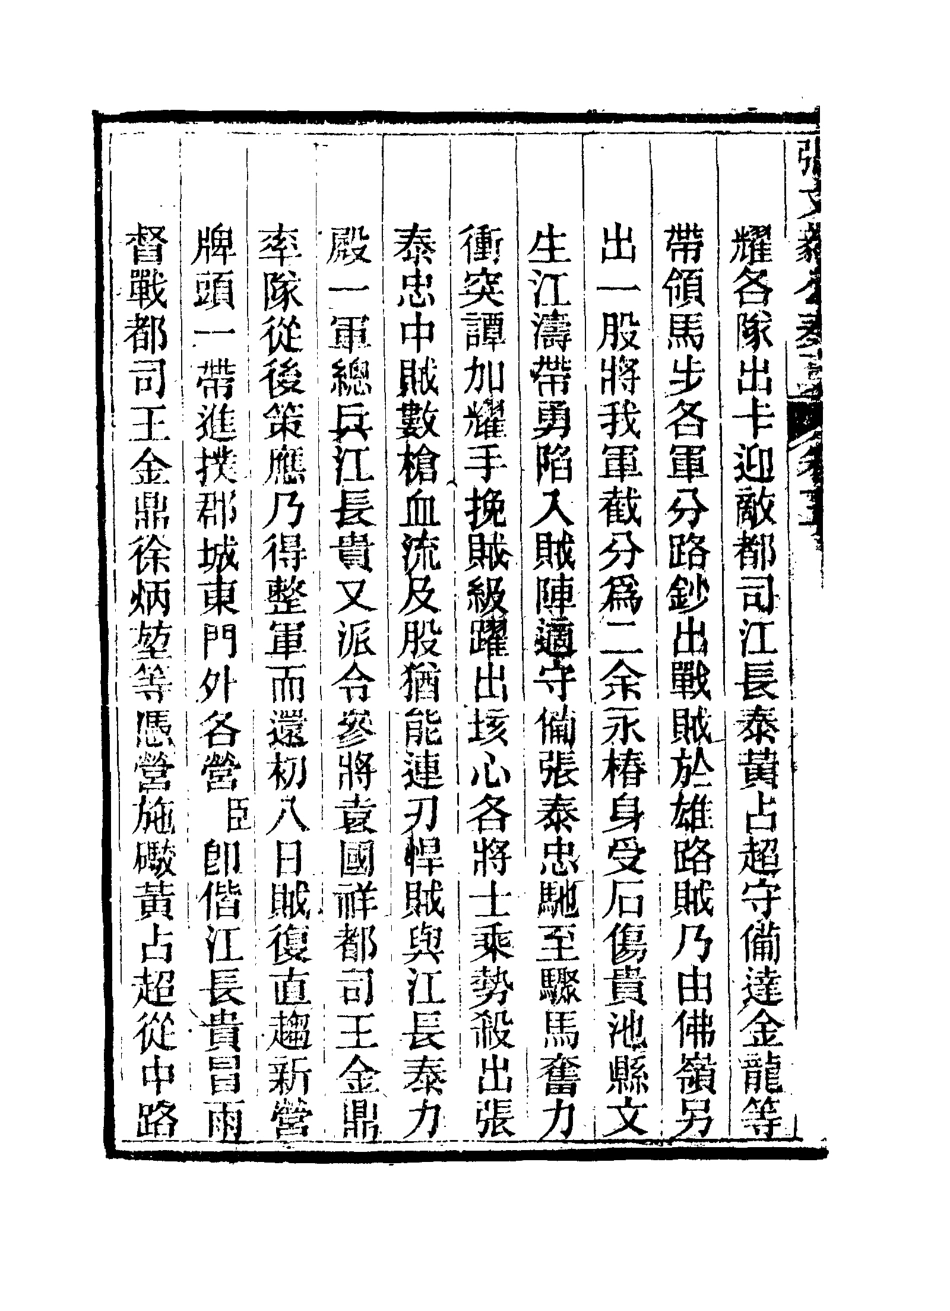 張文毅公奏議 卷五
耀各隊出卡迎敵都司江長泰黃占超守備達金龍等
帶領馬步各軍分路鈔出戰賊於雄路賊乃由佛嶺另
出一股將我軍截分爲二余永椿身受石傷貴池縣文
生江濤帶勇陷入賊陣適守備張泰忠馳至驟馬奮力
衝突譚加耀手挽賊級躍出垓心各將士乘勢殺出張
泰忠中賊數槍血流及股猶能連刃悍賊與江長泰力
殿一軍總兵江長貴又派令參將袁國祥都司王金鼎
率隊從後策應乃得整軍而還初八日賊復直趨新營
牌頭一帶進撲郡城東門外各營臣卽偕江長貴冒雨
督戰都司王金鼎徐炳堃等憑營施礮黃占超從中路